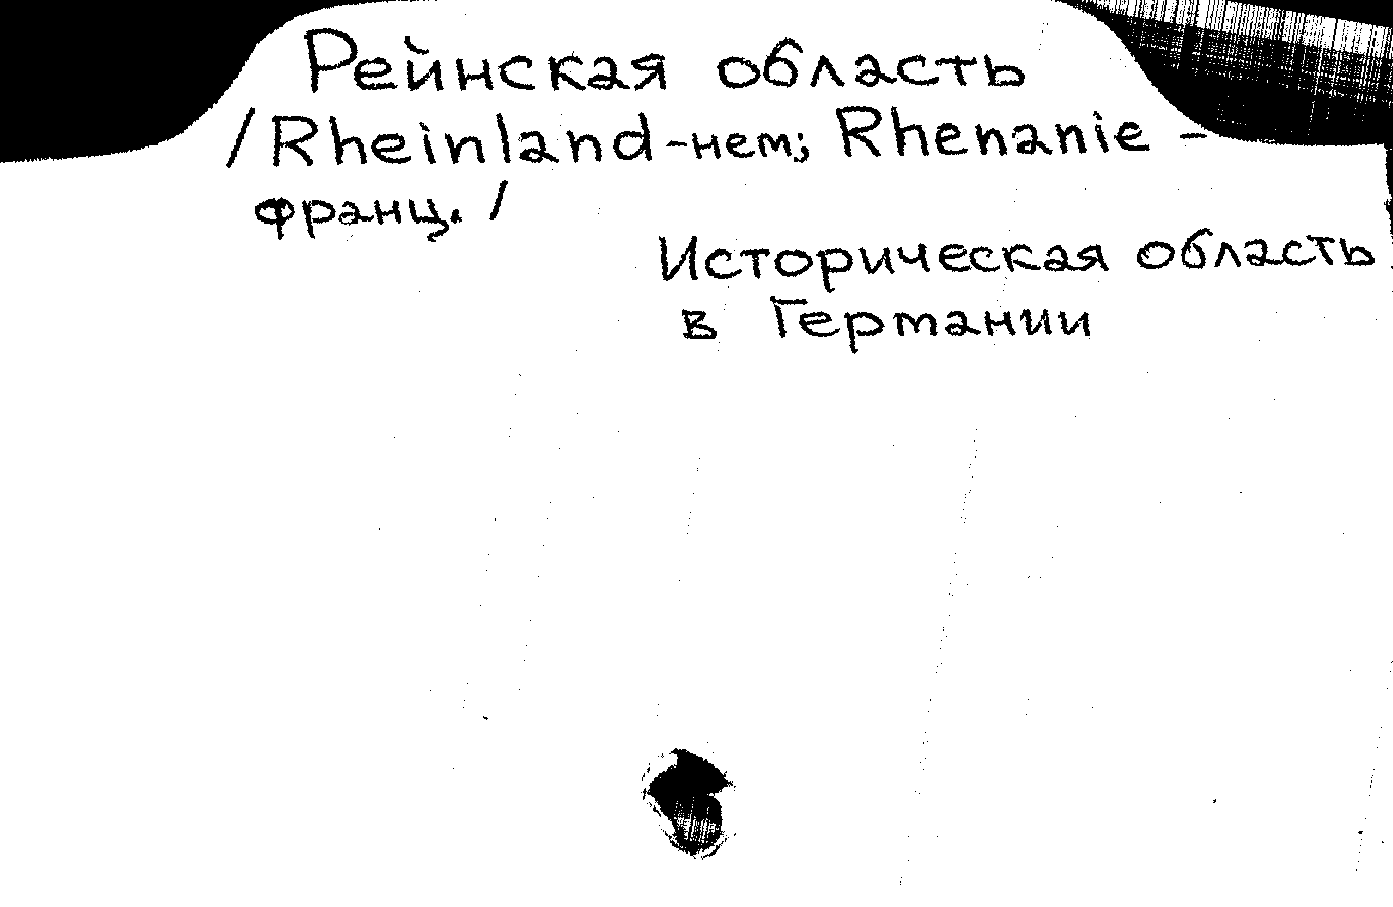 Рейнская область
/Rheinland-нем; Rhenanie -
франц. /
Историческая область
в Германии